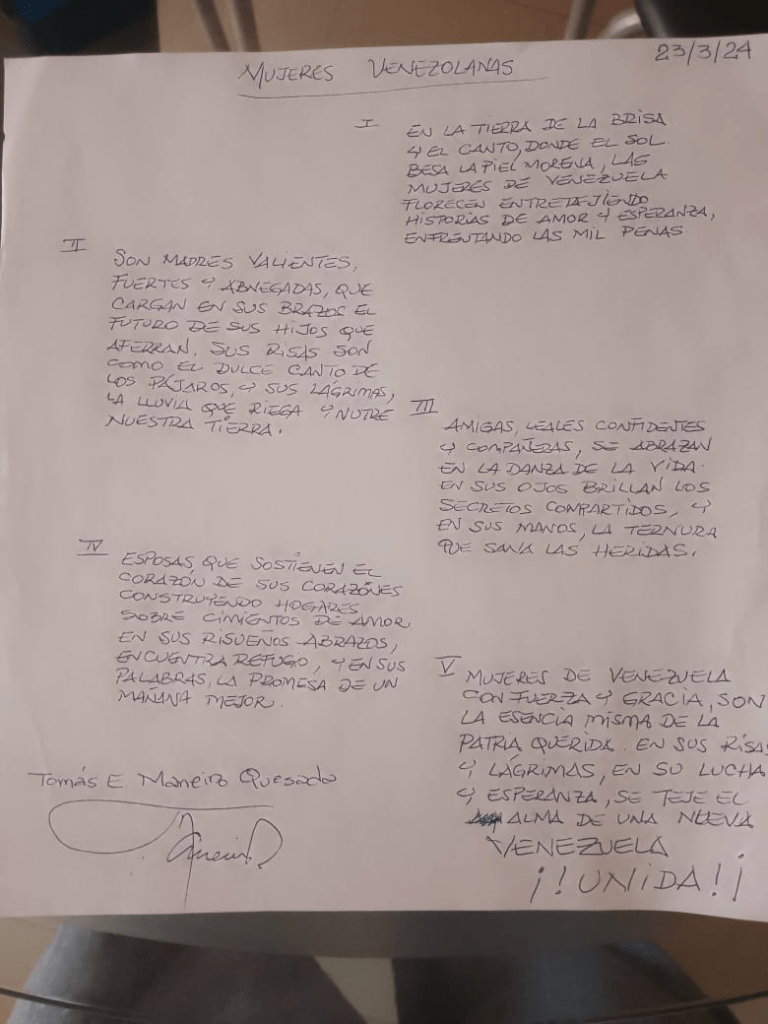 MUJERES VENEZOLANAS
23/3/24
I
EN LA TIERRA DE LA BRISA
Y EL CANTO, DONDE EL SOL
BESA LA PIEL MORENA, LAS
MUJERES DE VENEZUELA
FLORECEN ENTRETEJIENDO
HISTORIAS DE AMOR Y ESPERANZA,
ENFRENTANDO LAS MIL PENAS
II
SON MADRES VALIENTES,
FUERTES Y ABNEGADAS, QUE
CARGAN EN SUS BRAZOS EL
FUTURO DE SUS HIJOS QUE
AFERRAN. SUS RISAS SON
COMO EL DULCE CANTO DE
LOS PÁJAROS, Y SUS LÁGRIMAS,
LA LLUVIA QUE RIEGA Y NUTRE
NUESTRA TIERRA.
III
AMIGAS, LEALES CONFIDENTES
Y COMPAÑERAS, SE ABRAZAN
EN LA DANZA DE LA VIDA.
EN SUS OJOS BRILLAN LOS
SECRETOS COMPARTIDOS, Y
EN SUS MANOS, LA TERNURA
QUE SANA LAS HERIDAS.
IV
ESPOSAS QUE SOSTIENEN EL
CORAZÓN DE SUS CORAZÓNES
CONSTRUYENDO HOGARES
SOBRE CIMIENTOS DE AMOR
EN SUS RISUEÑOS ABRAZOS,
ENCUENTRA REFUGIO, Y EN SUS
PALABRAS, LA PROMESA DE UN
MAÑANA MEJOR.
V
MUJERES DE VENEZUELA
CON FUERZA Y GRACIA, SON
LA ESENCIA MISMA DE LA
PATRIA QUERIDA. EN SUS RISAS
Y LÁGRIMAS, EN SU LUCHA
Y ESPERANZA, SE TEJE EL
ALMA DE UNA NUEVA
VENEZUELA
¡!UNIDA!¡
Tomás E. Maneiro Quesada